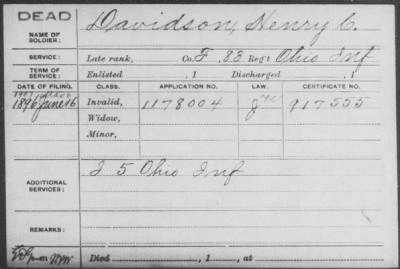 DEAD
NAME OF SOLDIER: Davidson, Henry C.
SERVICE: Late rank, Co. F. 83 Reg't Ohio Inf
TERM OF SERVICE: Enlisted , 1 Discharged , 1
DATE OF FILING. CLASS. APPLICATION NO. LAW. CERTIFICATE NO.
1896 June 16 Invalid, 1178004 917555
Widow,
Minor,
ADDITIONAL SERVICES: I 5 Ohio Inf
REMARKS:
Died , 1 , at